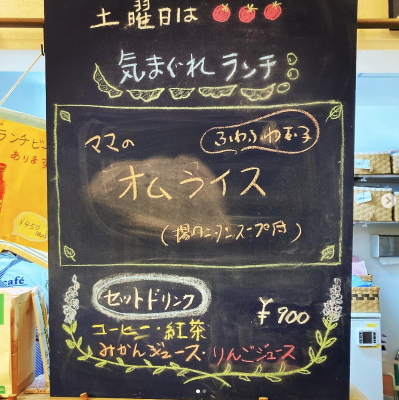 土曜日は
気まぐれランチ
ふわふわ玉子
ママの
オムライス
(揚ワンタンスープ付)
セットドリンク
¥900
コーヒー・紅茶
みかんジュース・りんごジュース
ランチビー
あります
¥450
café